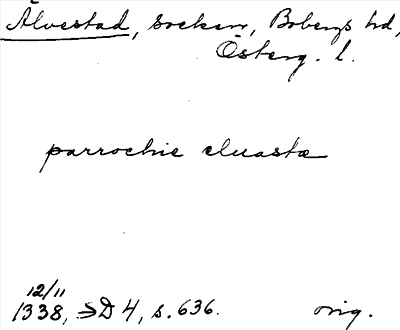 Älvestad, socken, Bobergs hd,
Österg. l.
parrochie eluastæ
12/11
1338, SD 4, s. 636. orig.